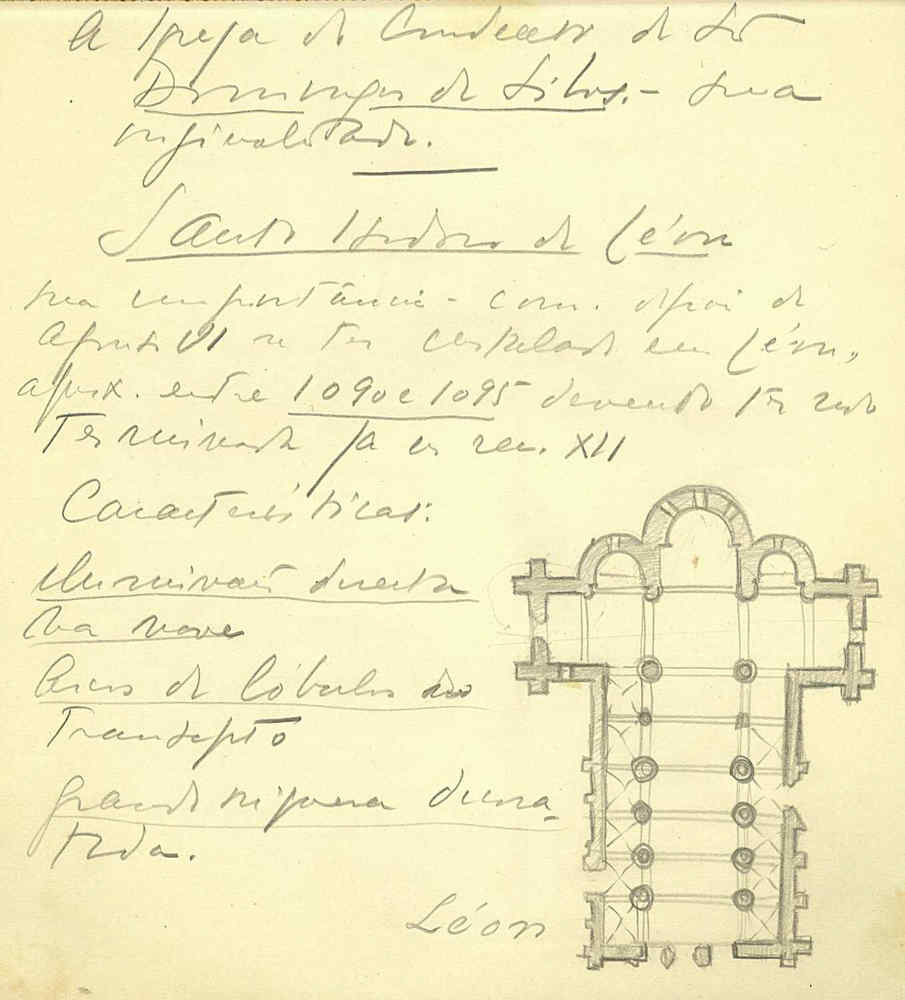 A Igreja do Convento de São
Domingos de Silos. – sua
originalidade.
Santo Isidoro de Léon
sua importância – com. depois de
Afonso VI se ter instalado em Léon,
aprox. entre 1090 e 1095 devendo ter sido
Terminada já no séc. XII
Características:
Iluminação directa
na nave
Arcos de lóbulos no
Transepto
grande riqueza
Léon